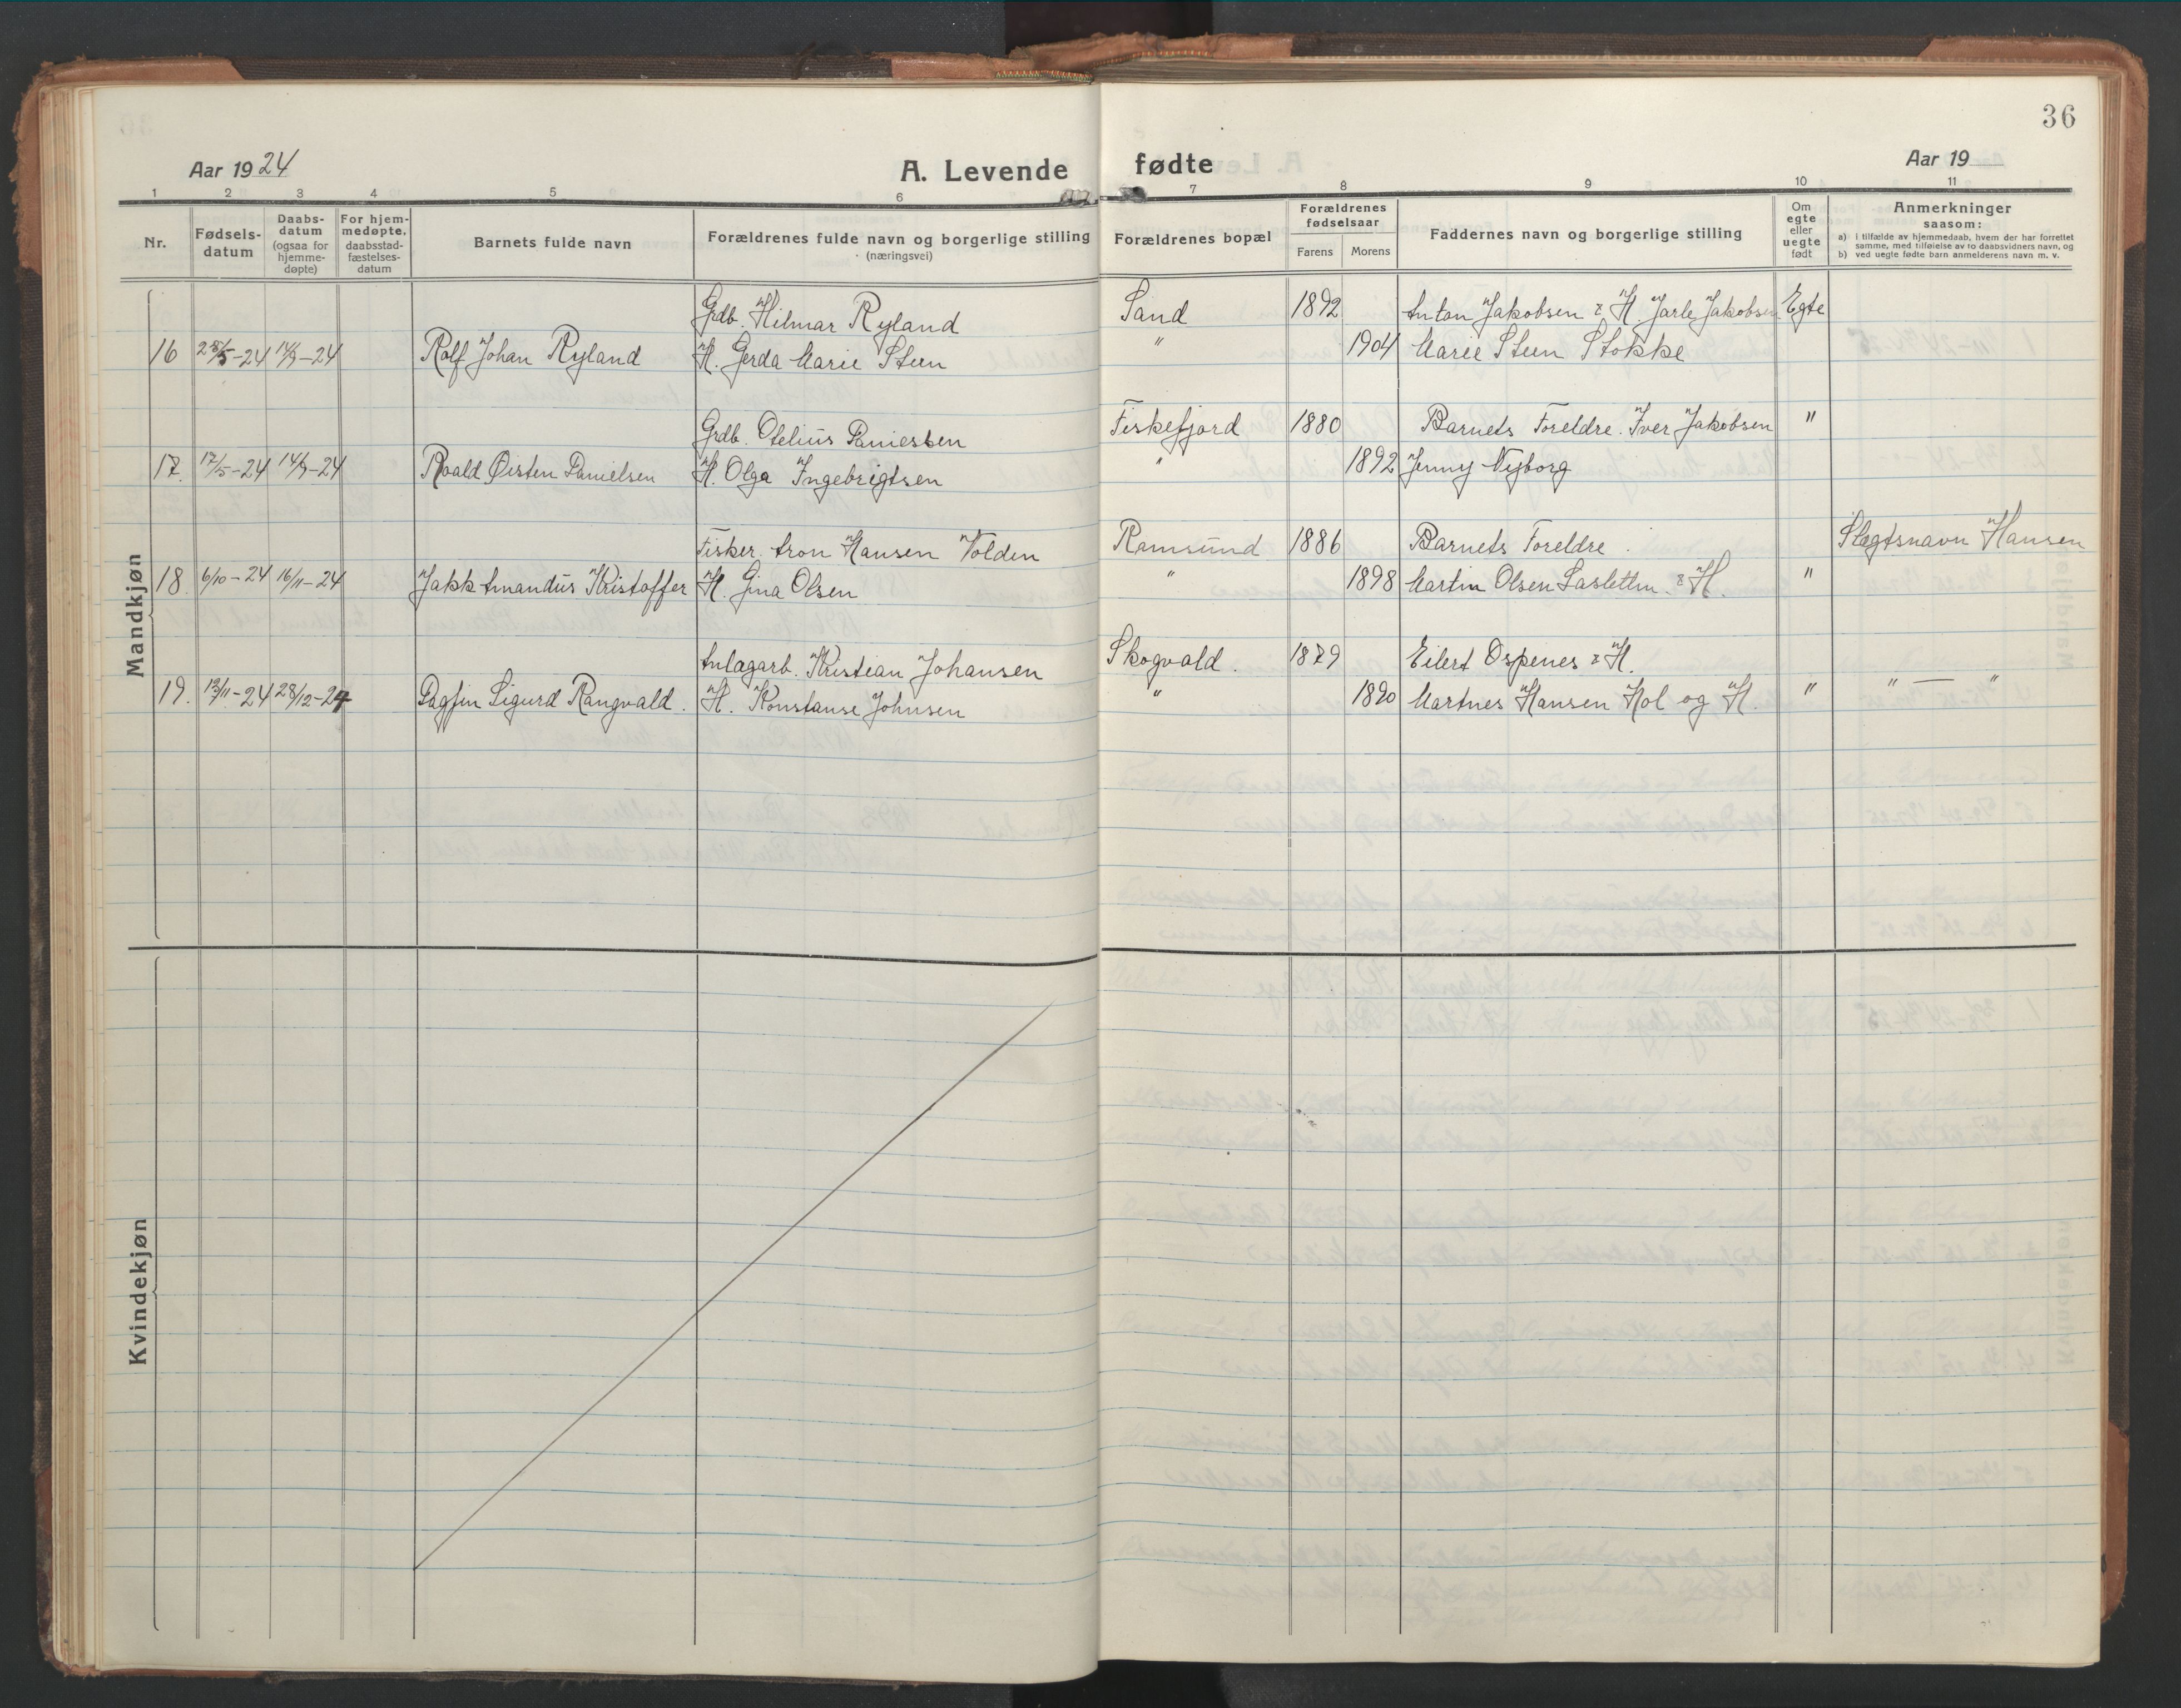 36
Aar 1924
A. Levende fødte
Aar 19
1 2 3 4 5 6 7 8 9 10 11
Nr.
Fødsels-
datum
Daabs-
datum
(ogsaa for
hjemme-
døpte)
For hjem-
medøpte.
daabsstad-
fæstelses-
datum
Barnets fulde navn
Forældrenes fulde navn og borgerlige stilling
(næringsvei)
Forældrenes bopæl
Forældrenes
fødselsaar
Farens Morens
Faddernes navn og borgerlige stilling
Om
egte
eller
uegte
født
Anmerkninger
saasom:
a) i tilfælde av hjemmedaab, hvem der har forrettet
samme, med tilføielse av to daabsvidners navn, og
b) ved uegte fødte barn anmelderens navn m. v.
Mandkjøn
Grdb. Hilmar Ryland Sand 1892 Anton Jakobsen & H. Jarle Jakobsen Egte
16 25/5-24 14/9-24 Rolf Johan Ryland H. Gerda Marie Steen " 1904 Marie Steen Stokke
Grdb. Otelius Fiskefjord 1880 Barnets Foreldre. Iver Jakobsen "
17. 17/5-24 14/9-24 Roald Øisten Danielsen H. Olga Ingebrigtsen " 1892 Jenny Nyborg
Fisker. Aron Hansen Volden Ramsund 1886 Barnets Foreldre. Slegtsnavn Hansen
18. 6/10-24 16/11-24 Jakk Amandus Kristoffer H. Gina Olsen " 1898 Martin Olsen & H. "
Anlægarb. Kristian Johansen Skogvald. 1879 Eilert Ospenes & H.
19. 12/11-24 28/12-24 Dagfin Sigurd Rangvald. H. Konstanse Johnsen " 1890 Martnes Hansen Hol og H. " " — "
Kvindekjøn